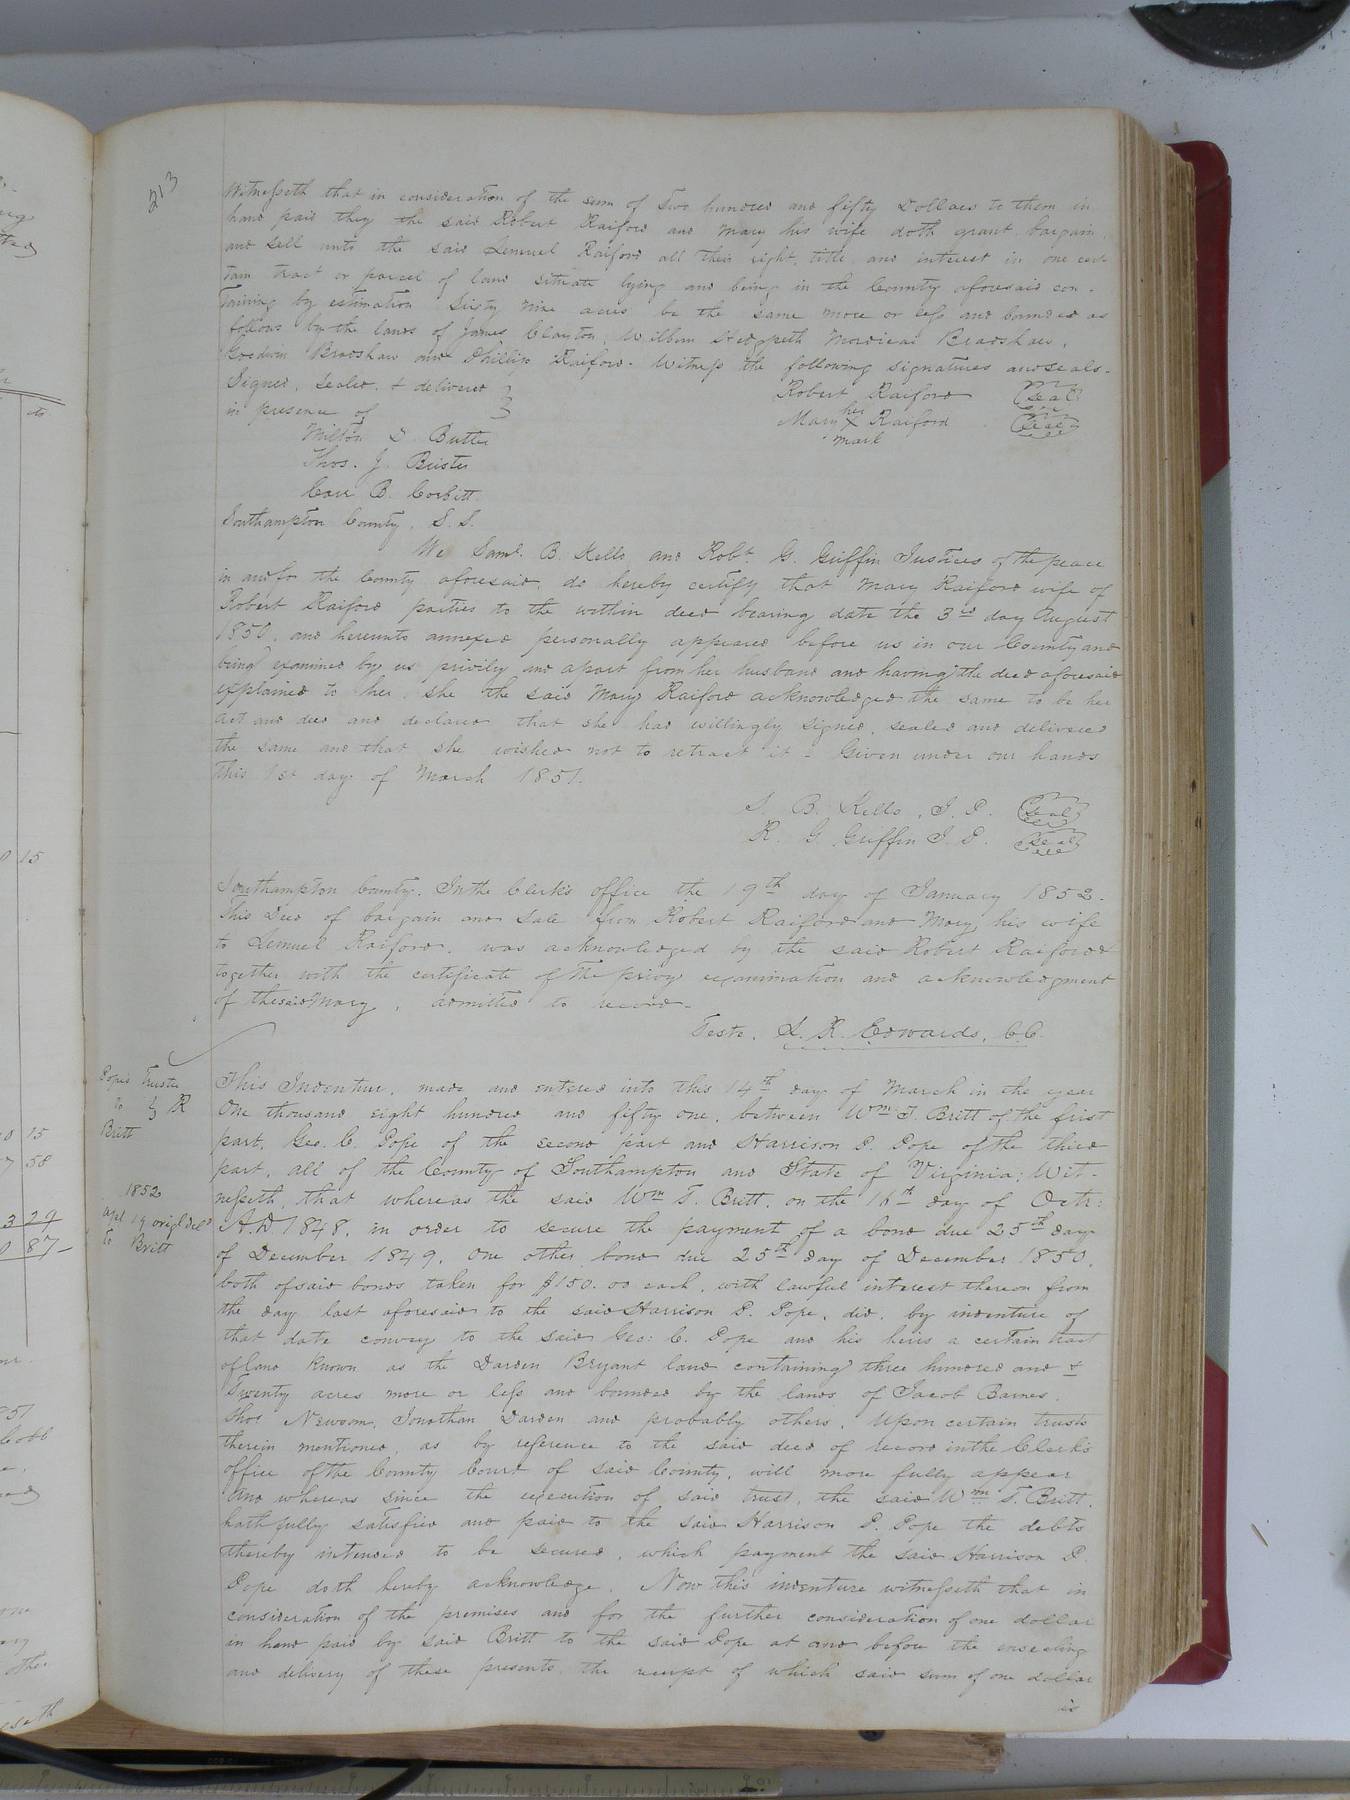 213
Witnesseth that in consideration of the sum of two hundred and fifty Dollars to them in
hand paid they the said Robert Raiford and Mary his wife doth grant, bargain,
and sell unto the said Lemuel Raiford all their right, title, and interest in one cer
tain tract or parcel of land situate lying and being in the County aforesaid con-
taining by estimation Sixty nine acres be the same more or less and bounded as
follows by the lands of James Clayton, Wilburn Hedgpeth Mordicai Bradshaw,
Goodwin Bradshaw and Phillip Raiford. Witness the following signatures and seals.
Signed, Sealed, & delivered
in presence of
Robert Raiford Seal
her
Mary X Raiford Seal
mark
Milton D. Butts
Thos. J. Brister
Carr B. Corbitt
Southampton County, S.S.
We Saml. B. Kello and Robt. G. Griffin Justices of the peace
in and for the County aforesaid, do hereby certify that Mary Raiford wife of
Robert Raiford parties to the within deed bearing date the 3rd day August
1850, and hereunto annexed personally appeared before us in our County and
being examined by us privily and apart from her husband and having the deed aforesaid
explained to her, she the said Mary Raiford acknowledged the same to be her
act and deed and declared that she had willingly signed, sealed and delivered
the same and that she wished not to retract it - Given under our hands
this 1st day of March 1851.
S. B. Kello, J. P. Seal
R. G. Griffin J. P. Seal
Southampton County. In the Clerk's office the 19th day of January 1852.
This Deed of bargain and Sale from Robert Raiford and Mary his wife
to Lemuel Raiford, was acknowledged by the said Robert Raiford
together with the certificate of the privy examination and acknowledgment
of the said Mary, admitted to record.
Teste, L. R. Edwards, C.C.
Pope's Trustee
to } R
Britt
1852
19 origl deld
to Britt
This Indenture, made and entered into this 14th day of March in the year
One thousand eight hundred and fifty one, between Wm. T. Britt of the first
part, Geo. C. Pope of the second part and Harrison P. Pope of the third
part, all of the County of Southampton and State of Virginia; Wit-
nesseth, that whereas the said Wm T. Britt, on the 16th day of Octr:
A.D 1848, in order to secure the payment of a bond due 25th day
of December 1849, one other bond due 25th day of December 1850,
both of said bonds taken for $150.00 each, with lawful interest thereon from
the day last aforesaid to the said Harrison P. Pope, did, by indenture of
that date convey to the said Geo: C. Pope and his heirs a certain tract
of land known as the Darden Bryant land containing three hundred and &
Twenty acres more or less and bounded by the lands of Jacob Barnes,
Thos Newsom, Jonathan Darden and probably others, Upon certain trusts
therein mentioned, as by reference to the said deed of record in the Clerk's
office of the County Court of said County, will more fully appear
And whereas since the execution of said trust, the said Wm T. Britt,
hath fully satisfied and paid to the said Harrison P. Pope the debts
thereby intended to be secured, which payment the said Harrison P.
Pope doth hereby acknowledge. Now this indenture witnesseth that in
consideration of the premises and for the further consideration of one dollar
in hand paid by said Britt to the said Pope at and before the ensealing
and delivery of these presents, the receipt of which said sum of one dollar
is